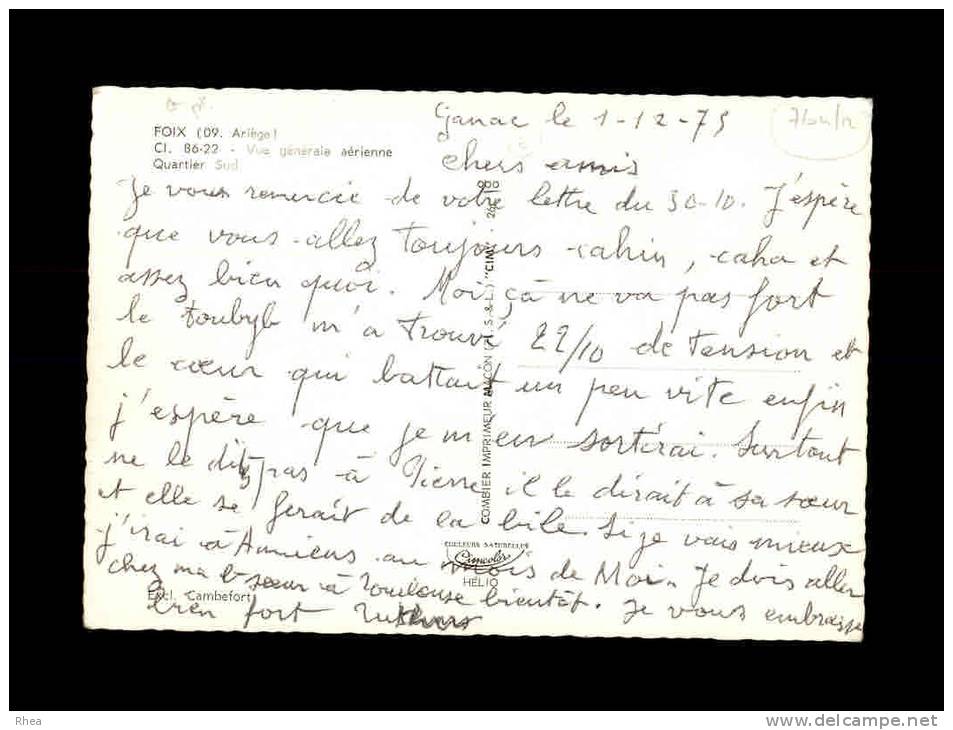 FOIX (09. Ariège)
Cl. 86-22 - Vue générale aérienne
Quartier Sud
Ganac le 1-12-75
chers amis
Je vous remercie de votre lettre du 30-10. J'espère
que vous allez toujours cahin, caha et
assez bien quoi. Moi çà ne va pas fort
le toubib m'a trouvé 22/10 de tension et
le cœur qui battait un peu vite enfin
j'espère que je m'en sortirai. Surtout
ne le dites pas à Pierre il le dirait à sa sœur
et elle se ferait de la bile. Si je vais mieux
j'irai à Amiens au mois de Mai. Je dois aller
chez ma b sœur à Toulouse bientôt. Je vous embrasse
bien fort
COMBIER IMPRIMEUR MACON (S.-&-L.) "CIM"
COULEURS NATURELLES
Cimcolor
HELIO
Excl. Cambefort
Rhea
www.delcampe.net